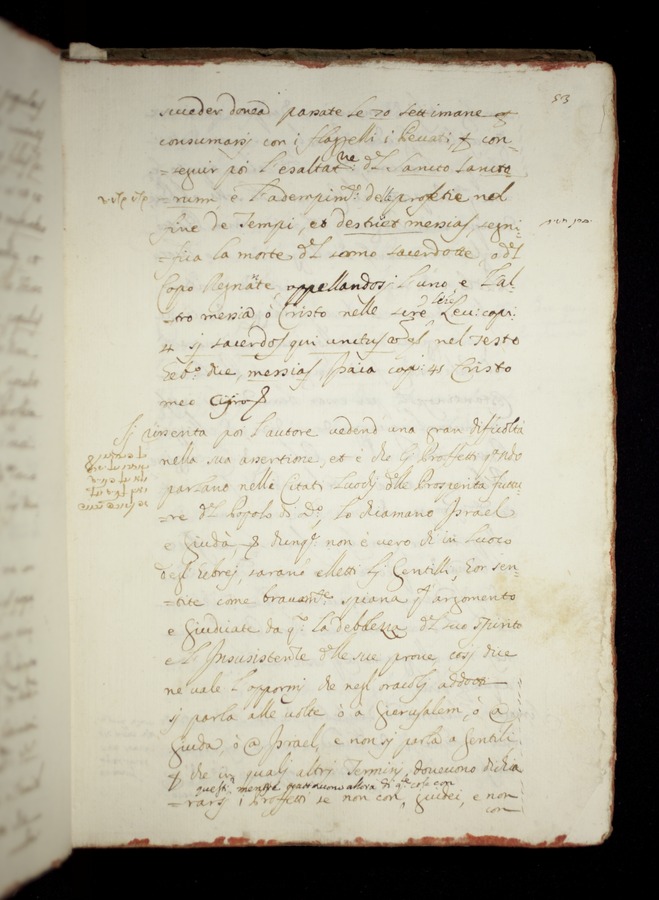 53
succeder doverà passate le 70 settimane
consumarsi con i flagelli i Peccati, con-
=seguir poi l'esaltat.ne dl Sancto Sancto
=rum e l'adempim.to delle profetie nel
fine de Tempi, et destruet messias, segni-
=fica la morte dl somo sacerdotte, o dl
Capo Regnãte appellandosi l'uno, e l'al-
=tro messia ò Cristo nelle Levi: cap:
4 si sacerdos qui unctus est nel Testo
heb.o dice, messias Isaia cap: 45 Cristo
meo Ciro
Si inventa poi l'autore vedend una gran dificoltà
nella sua assertione, et è che li Proffetti
parlano nelle citati luochi dlle Prosperità futu-
=re dl Popolo di, lo chiamano Israel
e Giudà, dunq: non è vero ch in luoco
degl'Hebrei sarano eletti li Gentilli, hor sen-
=tite come bravam.te spiana l'argomento
e Giudicate da q: la debolezza dl suo spirito
e l'Insusistente dlle sue prove, cosi dice
ne vale l'opormi che negl'oracoli
si parla alle volte ò à Gierusalem, ò a
Giuda, ò a Israel, e non si parla a Gentili
che in quali altri Termini dovevono dichia
questi, mentre allora di cose con
=rarsi i Proffetti se non con Giudei, e non
con